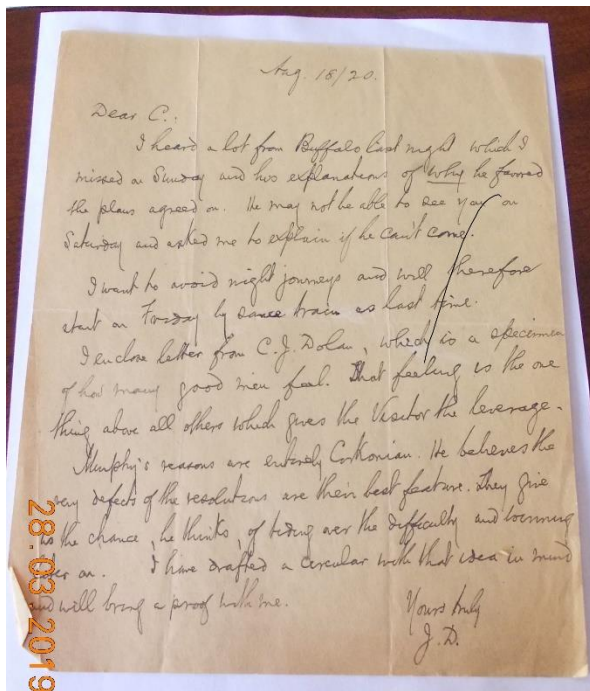 Aug. 18/20.
Dear C.:
I heard a lot from Buffalo last night which I
missed on Sunday and his explanations of why he favored
the plans agreed on. He may not be able to see you on
Saturday and asked me to explain if he can't come.
I want to avoid night journeys and will therefore
start on Friday by same train as last time.
I enclose letter from C.J. Dolan, which is a specimen
of how many good men feel. That feeling is the one
thing above all others which gives the Visitor the leverage.
Murphy's reasons are entirely Corkonian. He believes the
very defects of the resolutions are their best feature. They give
us the chance, he thinks, of tiding over the difficulty and winning
later on. I have drafted a circular with that idea in mind
and will bring a proof with me.
Yours truly
J.D.
28.03.2019